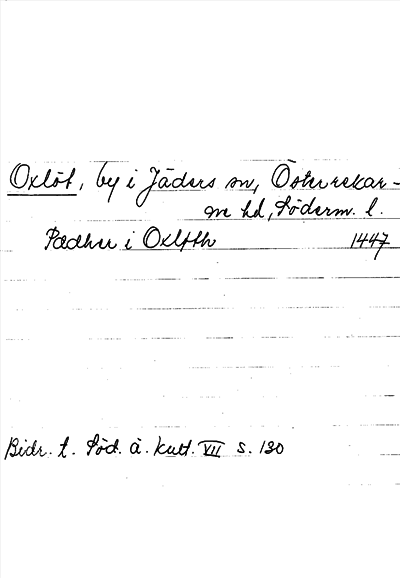 Oxlöt, by i Jäders sn, Österrekar-
ne hd, Söderm. l.
Pædher i Oxløth 1447
Bidr. t. Söd. ä. kult. VII s. 130